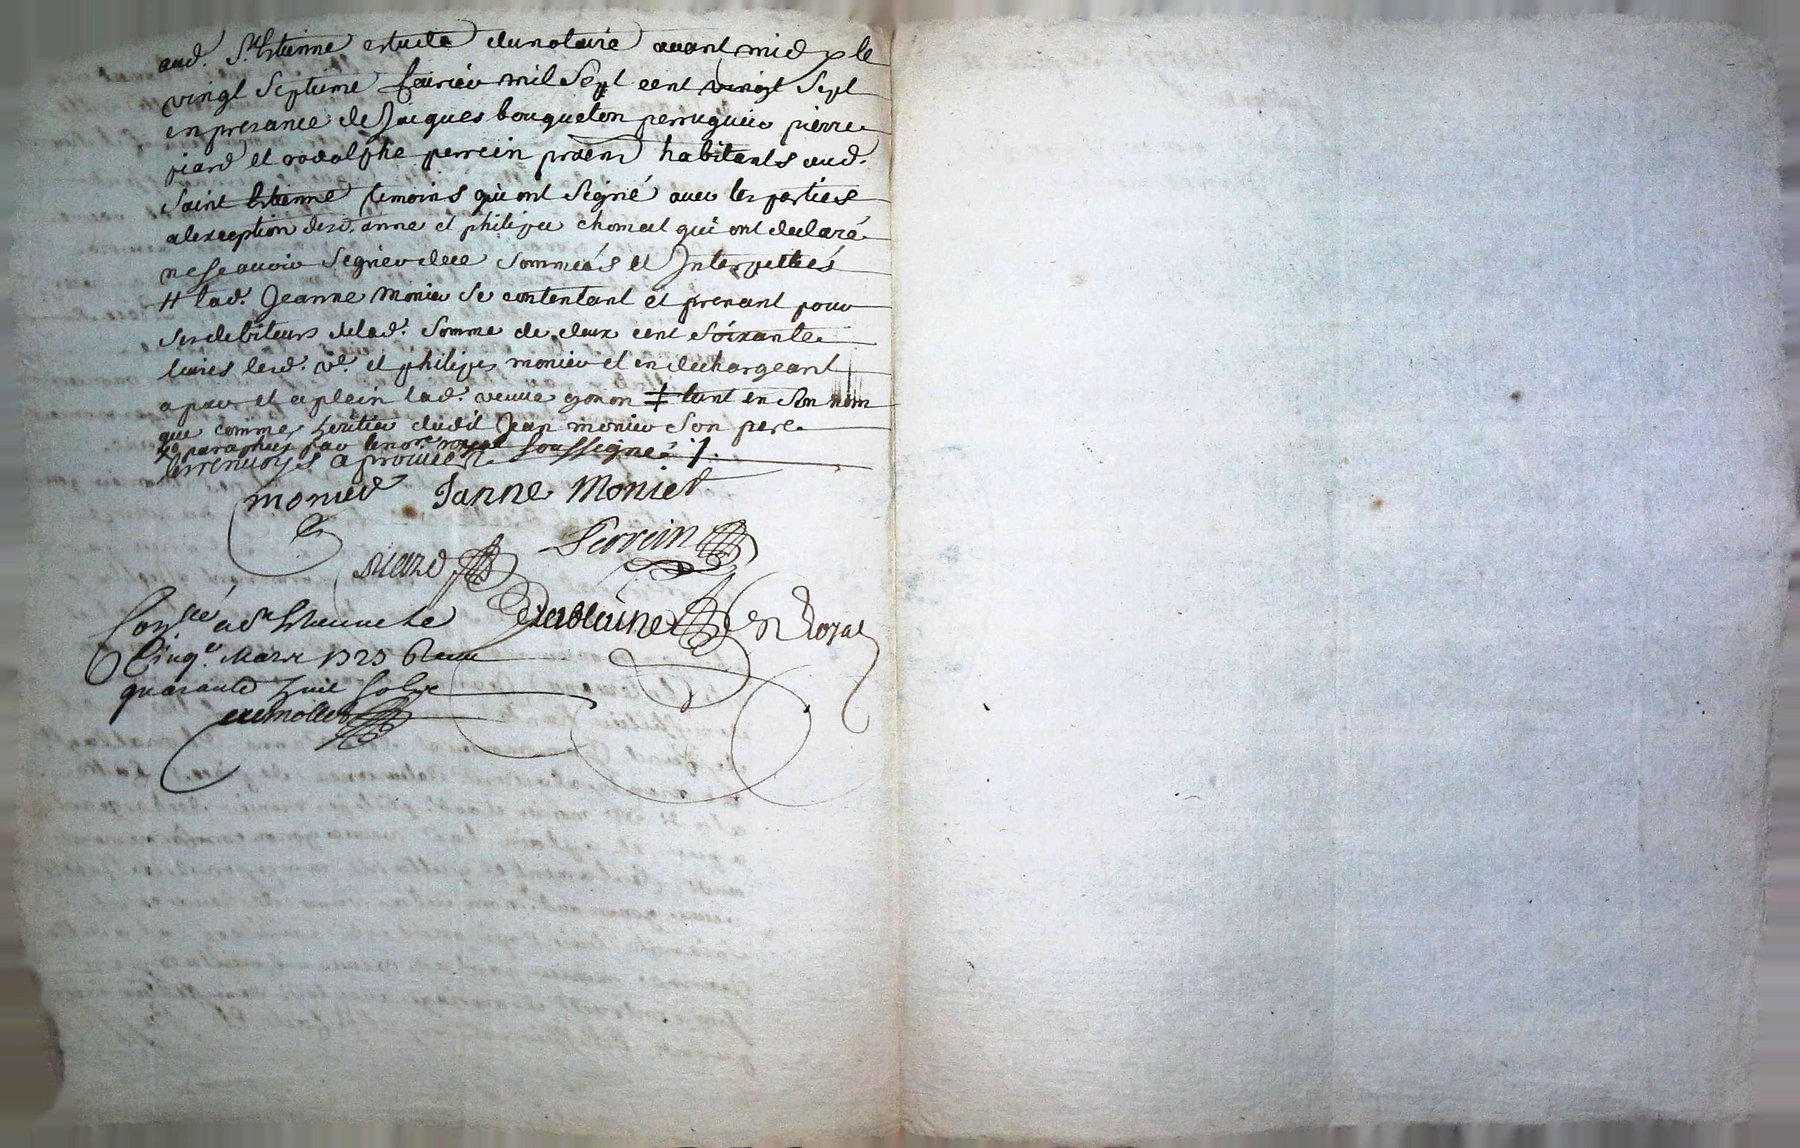 aud. St. Etienne estude du notaire avant midy le
vingt septieme feuvrier mil sept cent vingt sept
en presance de Jacques bouqueton perruquier pierre
siard et rodolphe perrein praen habitants aud.
saint Etienne temoins qui ont signé avec les parties
a lexception desd. anne et philipee chomat qui ont declaré
ne scavoir signer de ce sommés et Interpellés
# lad. Jeanne monier se contentant et prenant pour
ses debiteurs de lad. somme de deux cent soixante
livres lesd. ve. et philipes monier et en dechargeant
a pur et a plein lad. veuve gonon ‡ tant en son nom
que comme heritier dudit Jean monier son pere
et paraphés par le nore. royal soussigné ·/.
les renvoys aprouvés
monier Janne Monier
siard Perrein
Conllé a St Etienne le
Cinqe. Mars 1727 Receu
quarante huit sols
nre Royal